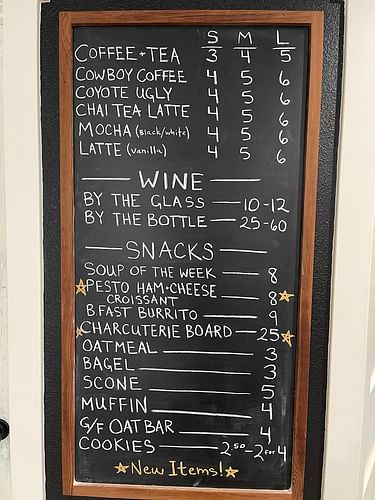 S M L
COFFEE + TEA 3 4 5
COWBOY COFFEE 4 5 6
COYOTE UGLY 4 5 6
CHAI TEA LATTE 4 5 6
MOCHA (Black/white) 4 5 6
LATTE (vanilla) 4 5 6
WINE
BY THE GLASS — 10-12
BY THE BOTTLE — 25-60
SNACKS
SOUP OF THE WEEK — 8
PESTO HAM+CHEESE
CROISSANT — 8
B.FAST BURRITO — 9
CHARCUTERIE BOARD — 25
OATMEAL — 3
BAGEL — 3
SCONE — 5
MUFFIN — 4
G/F OAT BAR — 4
COOKIES — 2.50 - 2 FOR 4
New Items!